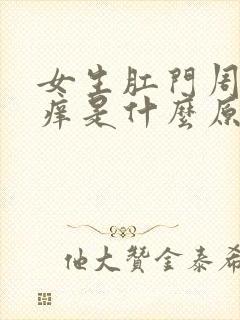 女生肛門周
痒是什麼原
他大贊金泰希